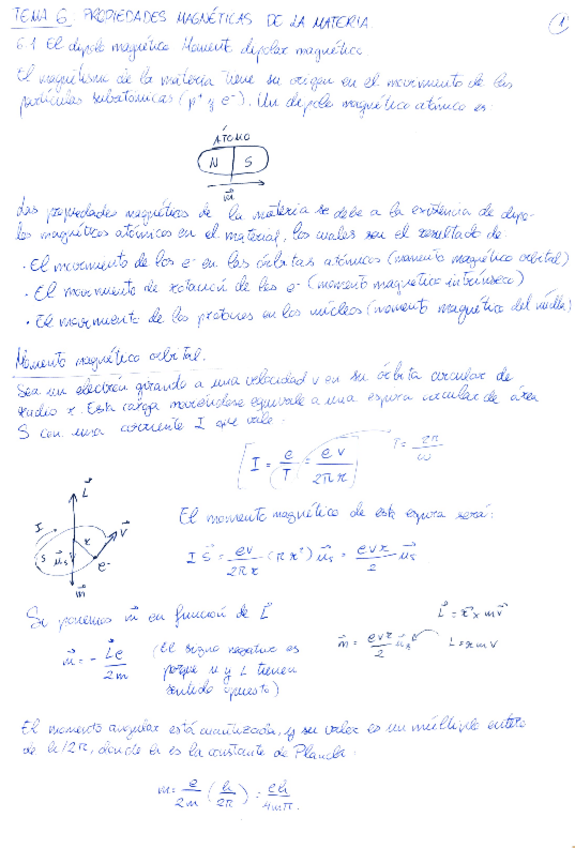 TEMA 6. PROPIEDADES MAGNÉTICAS DE LA MATERIA.
1
6.1 El dipolo magnético. Momento dipolar magnético
El magnetismo de la materia tiene su origen en el movimiento de las
partículas subatómicas (p⁺ y e⁻). Un dipolo magnético atómico es:
ÁTOMO
N S
m⃗
Las propiedades magnéticas de la materia se debe a la existencia de dipo-
los magnéticos atómicos en el material, los cuales son el resultado de:
· El movimiento de los e⁻ en las órbitas atómicas (momento magnético orbital)
· El movimiento de rotación de los e⁻ (momento magnético intrínseco)
· El movimiento de los protones en los núcleos (momento magnético del núcleo)
Momento magnético orbital.
Sea un electrón girando a una velocidad v en su órbita circular de
radio r. Esta carga moviéndose equivale a una espira circular de área
S con una corriente I que vale:
I = e/T = ev/2πr
T = 2π/ω
L⃗
I
r
v⃗
S
μ⃗s
e⁻
m⃗
El momento magnético de esta espira será:
I S⃗ = ev/2πr (πr²) μ⃗s = evr/2 μ⃗s
Si ponemos m⃗ en función de L⃗
L⃗ = r⃗ x mv⃗
m⃗ = - L⃗e/2m
(El signo negativo es
porque m y L tienen
sentido opuesto)
m⃗ = evr/2 μ⃗s
L = rmv
El momento angular está cuantizado, y su valor es un múltiplo entero
de h/2π, donde h es la constante de Planck:
m = e/2m (h/2π) = eh/4mπ.